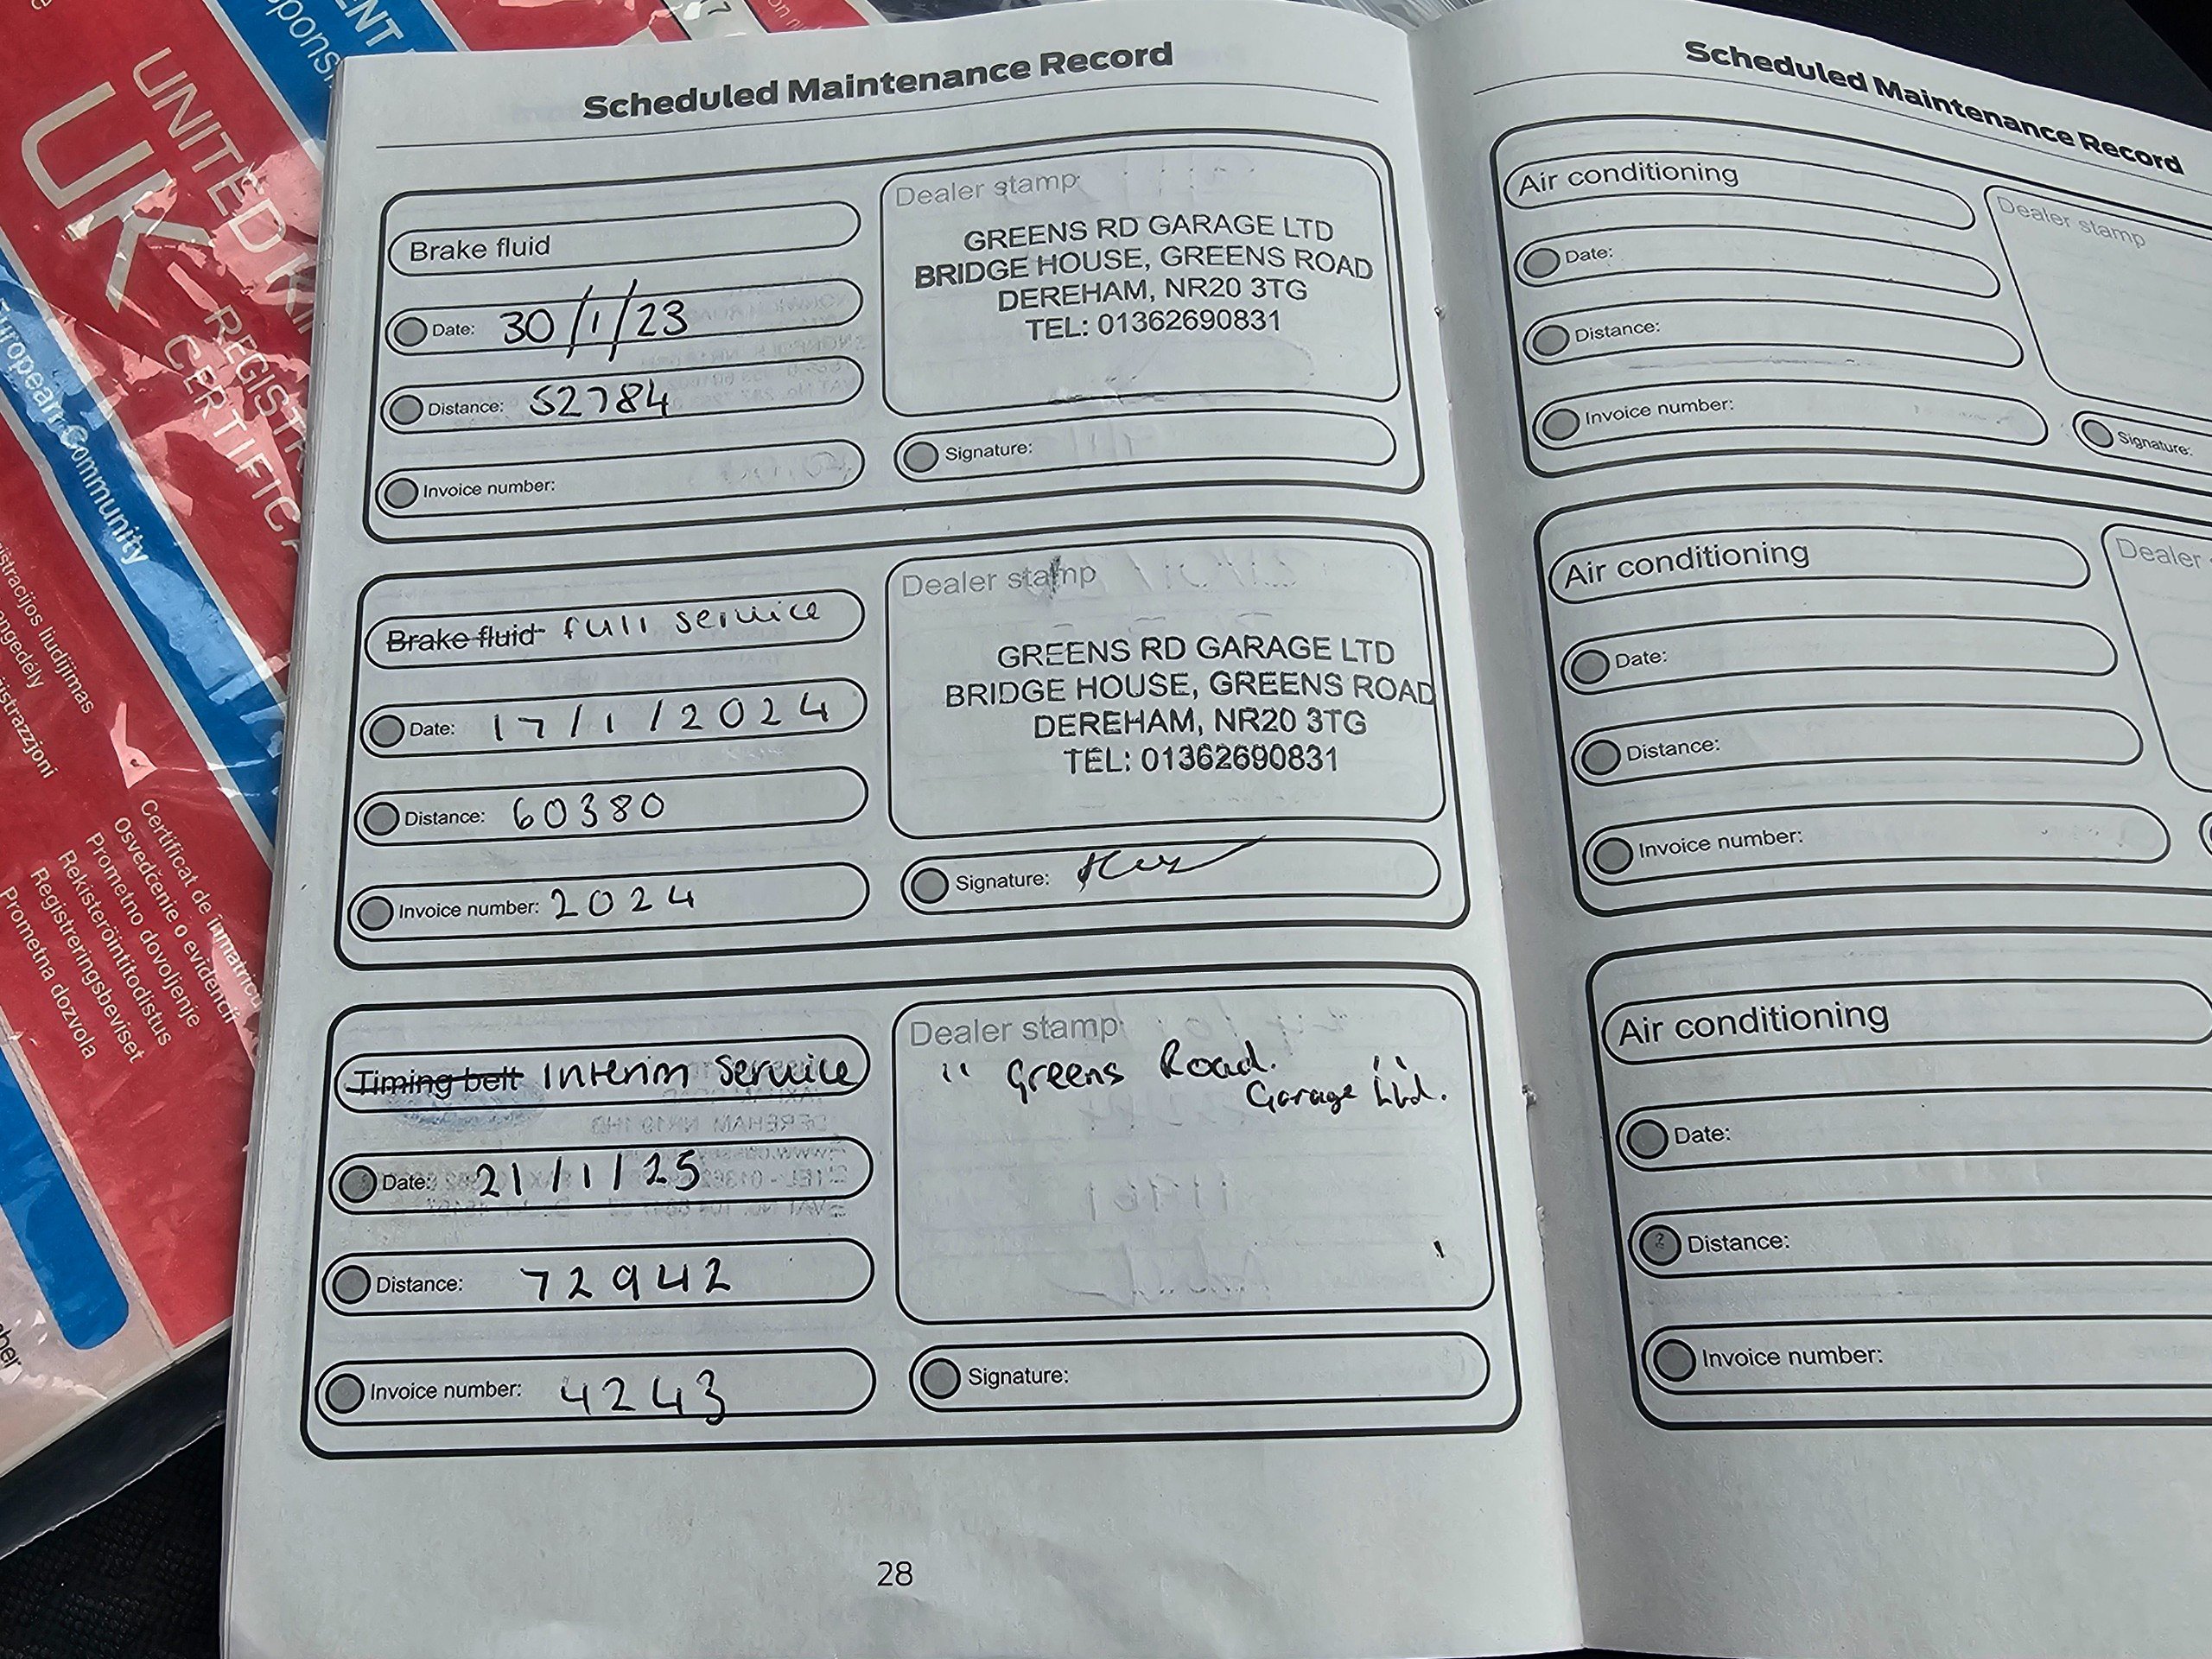 Scheduled Maintenance Record
Brake fluid
Date: 30/1/23
Distance: 52784
Invoice number:
Dealer stamp
GREENS RD GARAGE LTD
BRIDGE HOUSE, GREENS ROAD
DEREHAM, NR20 3TG
TEL: 01362690831
Signature:
Brake fluid full service
Date: 17/1/2024
Distance: 60380
Invoice number: 2024
Dealer stamp
GREENS RD GARAGE LTD
BRIDGE HOUSE, GREENS ROAD
DEREHAM, NR20 3TG
TEL: 01362690831
Signature:
Timing belt Interim Service
Date: 21/1/25
Distance: 72942
Invoice number: 4243
Dealer stamp
" Greens Road. "
Garage Ltd.
Signature:
28
Scheduled Maintenance Record
Air conditioning
Date:
Distance:
Invoice number:
Dealer stamp
Signature:
Air conditioning
Date:
Distance:
Invoice number:
Dealer
Air conditioning
Date:
Distance:
Invoice number:
UNITED
UK
REGISTR
CERTIFICA
European Community
Certificat de
Osvedčenie o evidencii
Prometno dovoljenje
Rekisteröintitodistus
Registreringsbeviset
Prometna dozvola